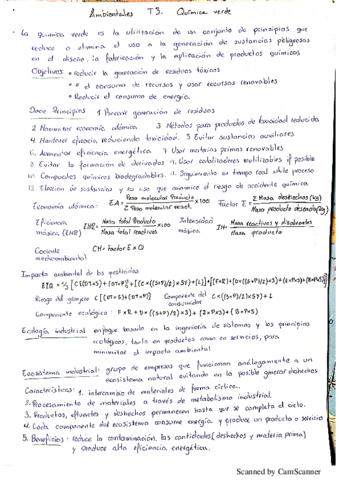 Ambientales T3. Química verde
· La química verde es la utilización de un conjunto de principios que
reduce o elimina el uso a la generación de sustancias peligrosas
en el diseño, la fabricación y la aplicación de productos químicos
Objetivos: · Reducir la generación de residuos tóxicos
· " el consumo de recursos y usar recursos renovables
· Reducir el consumo de energía.
Doce Principios 1 Prevenir generación de residuos
2 economía atómica 3 Métodos para productos de toxicidad reducida
4 Mantener eficacia, reduciendo toxicidad 5 Evitar sustancias auxiliares
6 Aumentar eficiencia energética 7 Usar materias primas renovables
8 Evitar la formación de derivados 9 Usar catalizadores reutilizables si posible
10 Compuestos químicos biodegradables. 11 Seguimiento en tiempo real del proceso
12 Elección de sustancias y su uso que minimice el riesgo de accidente químico
Economía atómica: EA = Peso molecular Producto / Σ Peso molecular react. x100 Factor E = Σ Masa deshechos (kg) / Masa producto deseado (kg)
Eficiencia másica, (EMR) EMR = Masa total Producto / Masa total Reactivos x100 Intensidad másica IM = Masa reactivos y disolventes / Masa producto
Cociente medioambiental CM = Factor E x Q
Impacto ambiental de los pesticidas
Riesgo del granjero C[(DT×5)+(DT×P)] Componente del consumidor C×((S+P)/2)×SY)+L
Componente ecológica: F×R+D×((S+P)/2)×3)+(Z×P×3)+(B×P×5)
Ecología industrial enfoque basado en la ingeniería de sistemas y los principios
ecológicos, tanto en productos como en servicios, para
minimizar el impacto ambiental
Ecosistema industrial: grupo de empresas que funcionan análogamente a un
ecosistema natural evitando en lo posible generar deshechos
Características: 1. intercambio de materiales de forma cíclica.
2. Procesamiento de materiales a través de metabolismo industrial.
3. Productos, efluentes y deshechos permanecen hasta que se completa el ciclo.
4. Cada componente del ecosistema consume energía, y produce un producto o servicio
5. Beneficios: reduce la contaminación, las cantidades (deshechos y materia prima)
y produce alta eficiencia energética.
Scanned by CamScanner